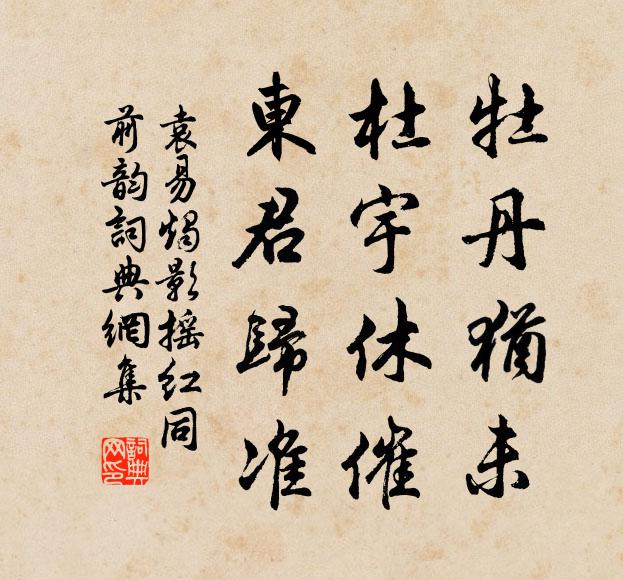 牡丹猶未
杜宇休催
東君歸准
袁易燭影摇红同
前韵詞典網集
詞典網印